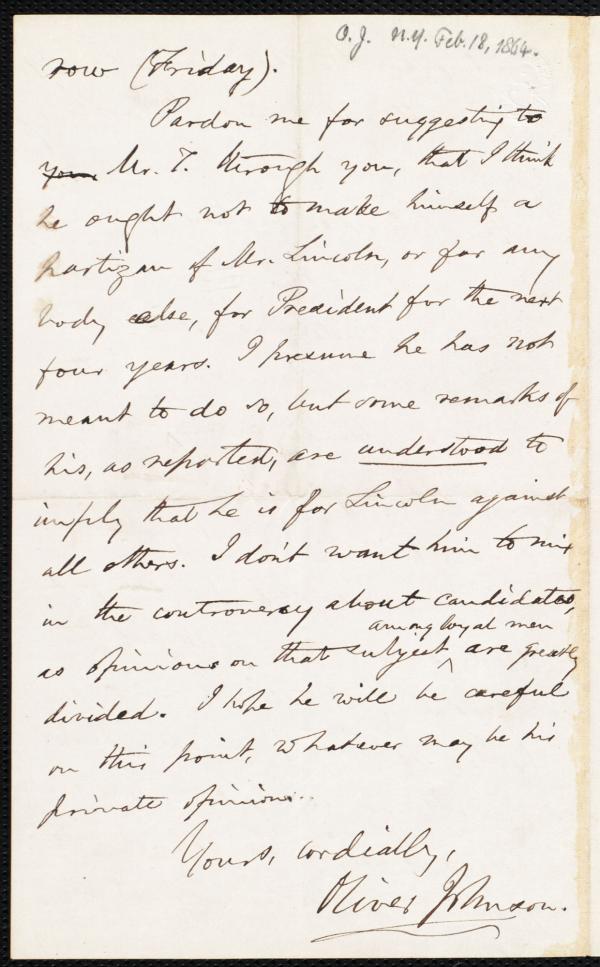 O. J. N.Y. Feb. 18, 1864.
row (Friday).
Pardon me for suggesting to
you, Mr. T. through you, that I think
he ought not to make himself a
partizan of Mr. Lincoln, or for any
body else, for President for the next
four years. I presume he has not
meant to do so, but some remarks of
his, as reported, are understood to
imply that he is for Lincoln against
all others. I don't want him to mix
in the controversy about candidates,
among loyal men
as opinions on that subject ^ are greatly
divided. I hope he will be careful
on this point, whatever may be his
private opinions.
Yours, cordially,
Oliver Johnson.